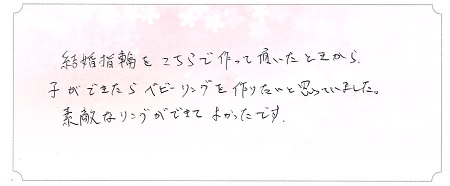 結婚指輪をこちらで作って頂いたときから、
子ができたらベビーリングを作りたいと思っていました。
素敵なリングができてよかったです。